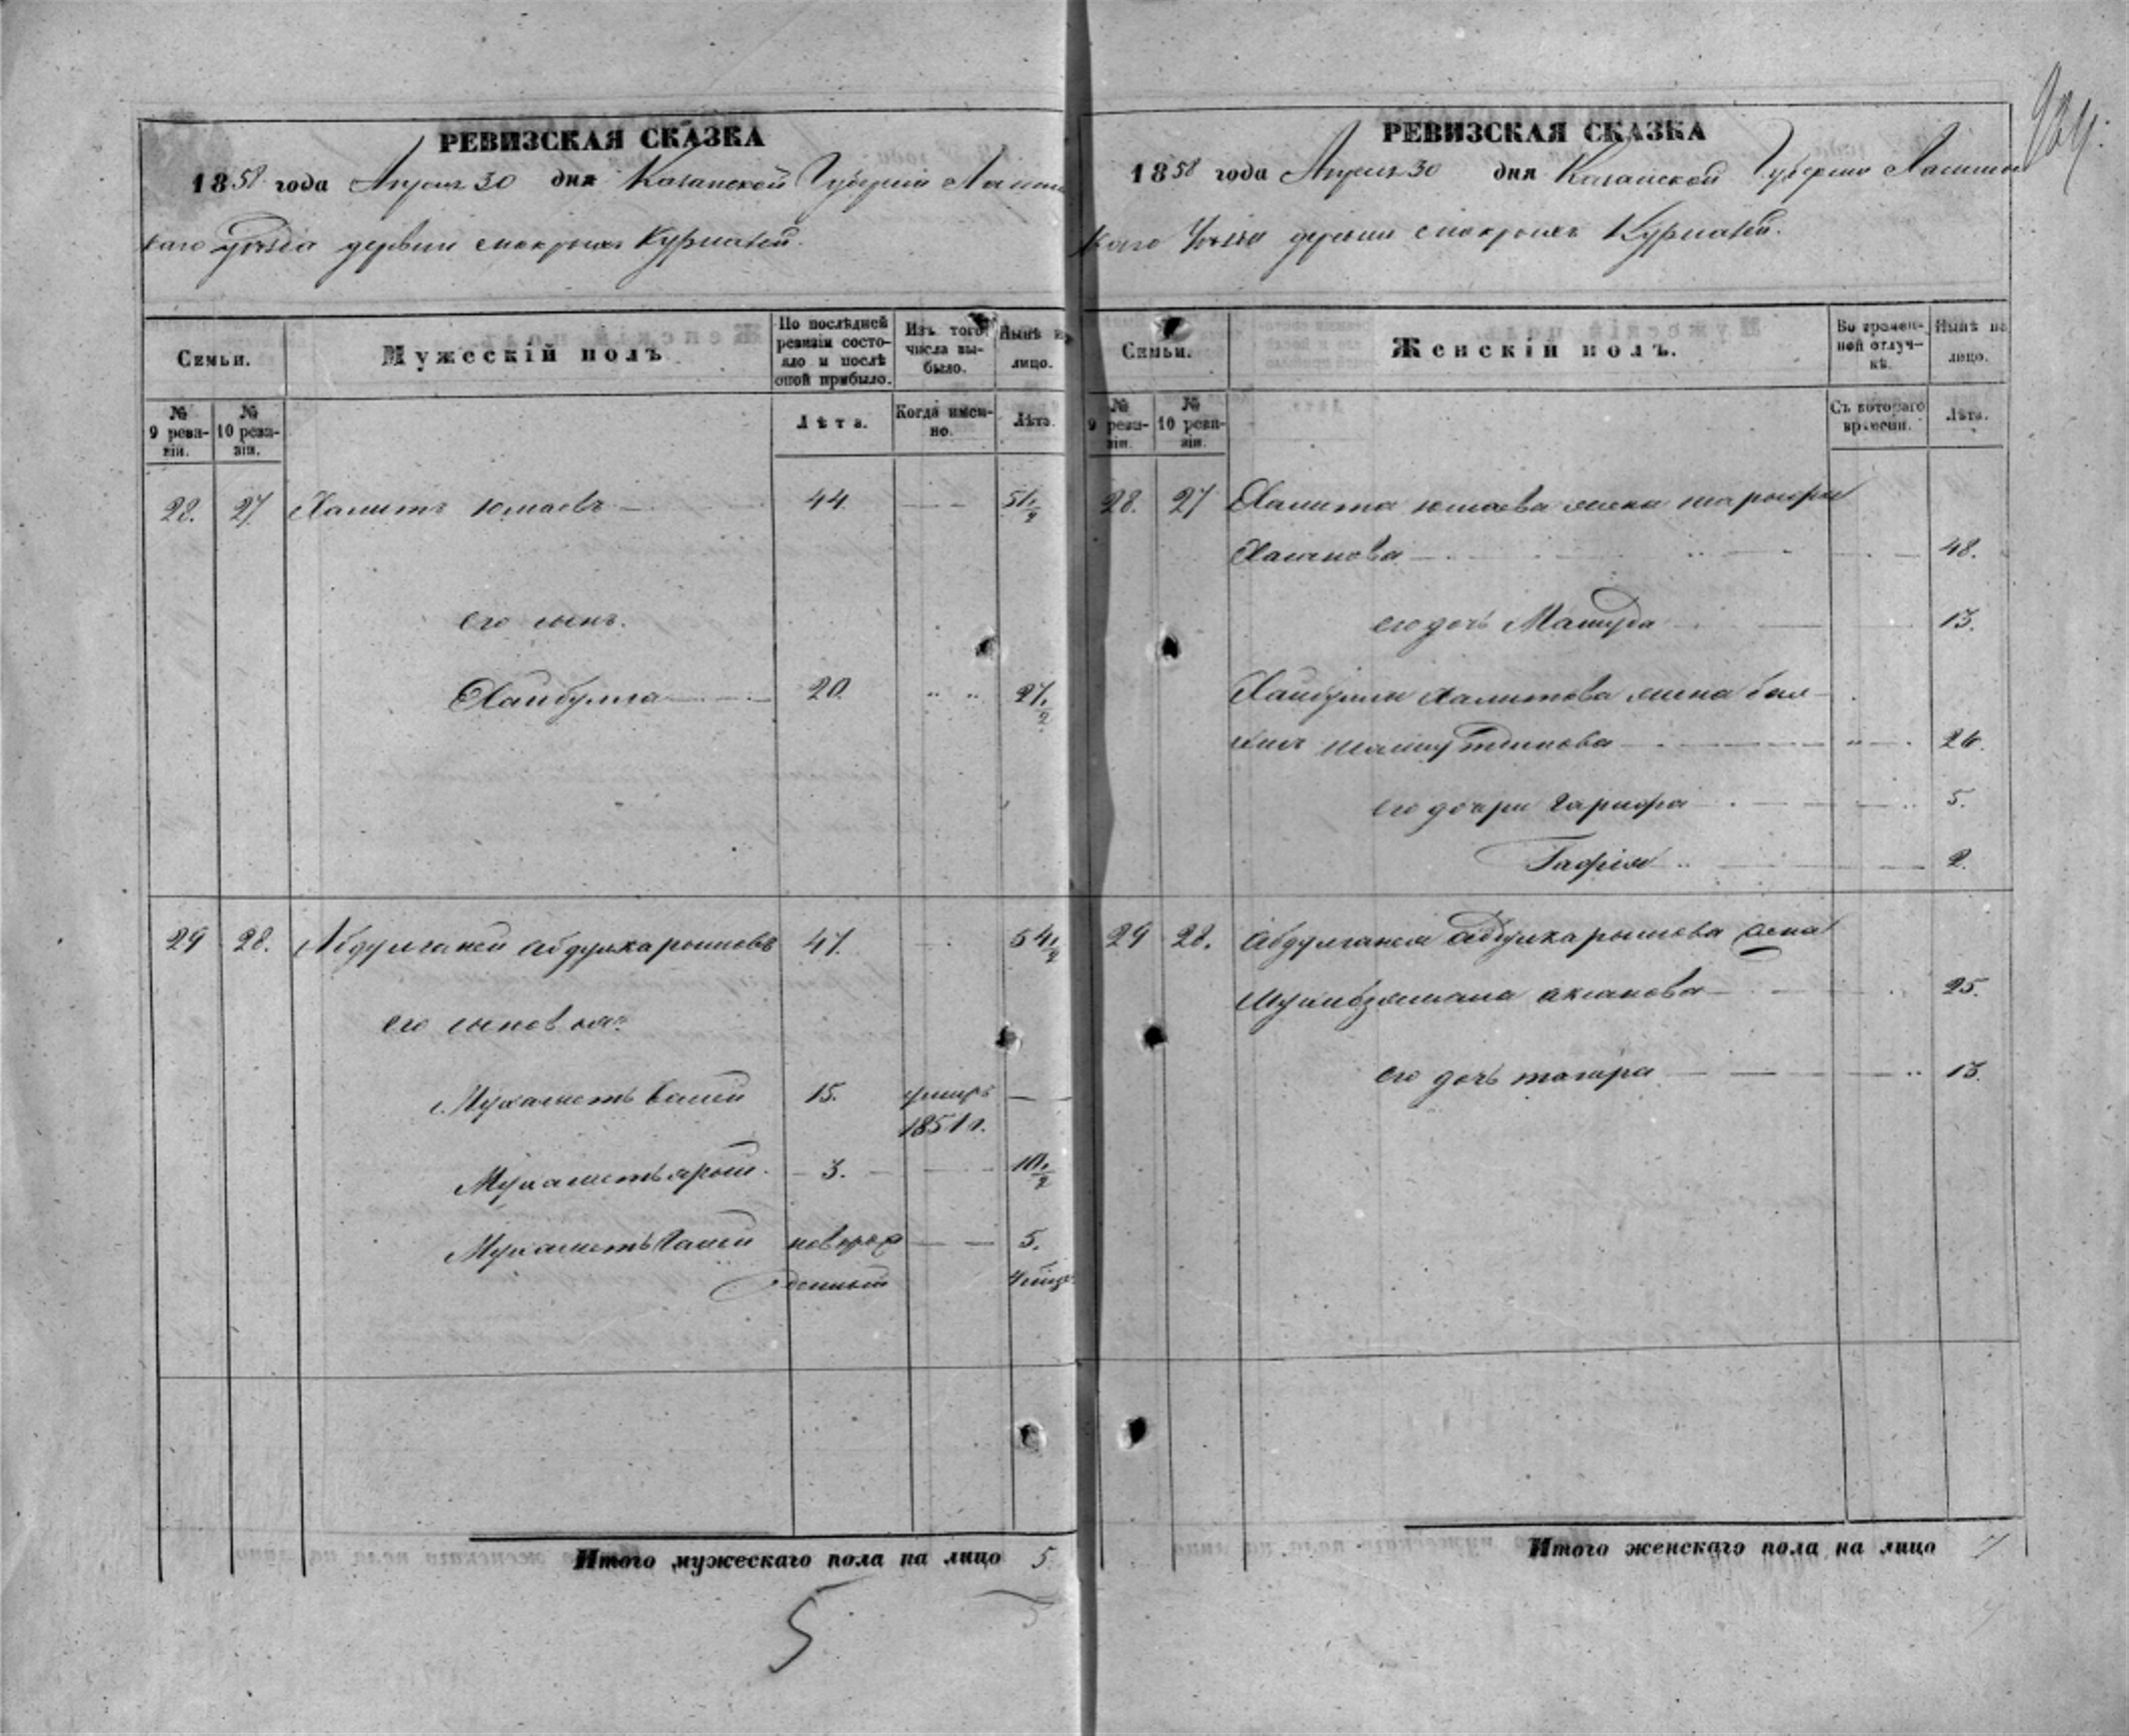 924.
РЕВИЗСКАЯ СКАЗКА
1858 года Апреля 30 дня Казанской Губернiи Лаишев
каго Уѣзда деревни смокрыхъ Курналей.
Семьи.
Мужескiй полъ
По послѣдней ревизiи состояло и послѣ оной прибыло.
Изъ того числа выбыло.
Нынѣ на лицо.
№ 9 ревизiи.
№ 10 ревизiи.
Лѣта.
Когда именно.
Лѣта.
28. 27 Халитъ Юмаевъ 44 51 1/2
его сынъ.
Хайбулла 20. 27 1/2
29 28. Абдулганей Абдулкарымовъ 47. 54 1/2
его сыновья:
Мухаметь валей 15. умеръ
1851 г.
Мухаметь 3. 10 1/2
Мухаметь Галей новорож 5.
денный
Итого мужескаго пола на лицо 5.
5
РЕВИЗСКАЯ СКАЗКА
1858 года Апреля 30 дня Казанской Губернiи Лаишев
каго Уѣзда деревни смокрыхъ Курналей.
Семьи.
Женскiй полъ.
Во временной отлучкѣ.
Нынѣ на лицо.
№ 9 ревизiи.
№ 10 ревизiи.
Съ котораго времени.
Лѣта.
28. 27 Халита юмаева жена
Хасанова 48.
его дочь Машуда 13.
Хайбуллы Халитова жена бал
26.
его дочери Гарифа 5.
Гафiя 2.
29 28. Абдулганея Абдулкарымова жена
25.
его дочь тагира 13.
Итого женскаго пола на лицо 7